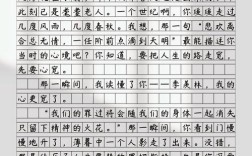 此刻已是耄耋老人。一个世纪啊,你缓缓走过
几度风雨,几度春秋。我想,那一句"悲欢离
合总无情,一任阶前点滴到天明"最能描述你
当时的心境吧?你知道,要把人生的路走宽,先
要心宽。
"那一瞬间,我读懂了你——季羡林,我的
心更宽了。
"我们的罪过将会随我们的身体一起消失
只留下精神的火花。"那一瞬间,你看到门慢
慢地开了,薄暮中一个人影走了出来。没错